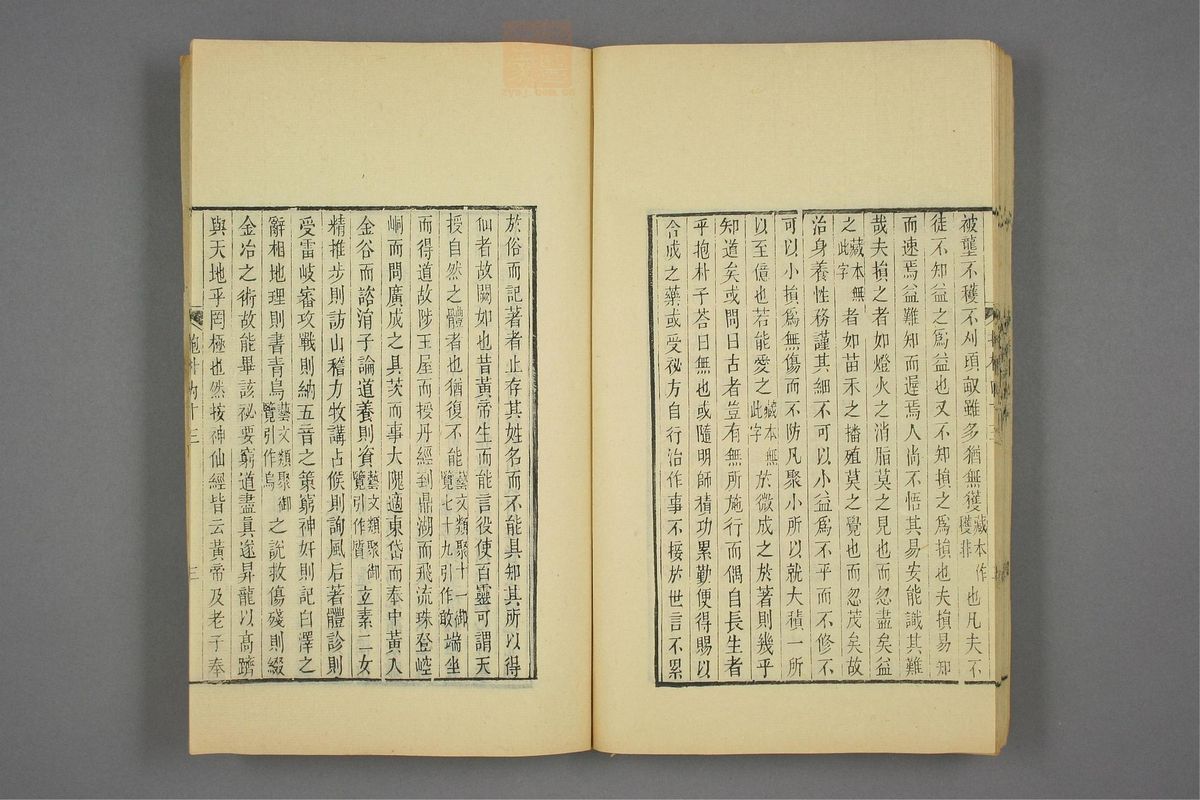 被壟不穫不刈頃畝雖多猶無獲藏本作穫非也凡夫不
徒不知益之爲益也又不知損之爲損也夫損易知
而速焉益難知而遲焉人尚不悟其易安能識其難
哉夫損之者如燈火之消脂莫之見也而忽盡矣益
之藏本無此字者如苗禾之播殖莫之覺也而忽茂矣故
治身養性務謹其細不可以小益爲不平而不修不
可以小損爲無傷而不防凡聚小所以就大積一所
以至億也若能愛之藏本無此字於微成之於著則幾乎
知道矣或問曰古者豈有無所施行而偶自長生者
乎抱朴子荅曰無也或隨明師積功累勤便得賜以
合成之藥或受祕方自行治作事不接於世言不累
於俗而記著者止存其姓名而不能具知其所以得
仙者故闕如也昔黃帝生而能言役使百靈可謂天
授自然之體者也猶復不能藝文類聚十一御覽七十九引作敢端坐
而得道故陟王屋而授丹經到鼎湖而飛流珠登崆
峒而問廣成之具茨而事大隗適東岱而奉中黃入
金谷而諮涓子論道養則資藝文類聚御覽引作質立素二女
精推步則訪山稽力牧講占候則詢風后著體診則
受雷岐審攻戰則納五音之策窮神奸則記白澤之
辭相地理則書青烏藝文類聚御覽引作烏之說救傷殘則綴
金冶之術故能畢該祕要窮道盡眞遂昇龍以高躋
與天地乎罔極也然按神仙經皆云黃帝及老子奉
抱朴內十三
三